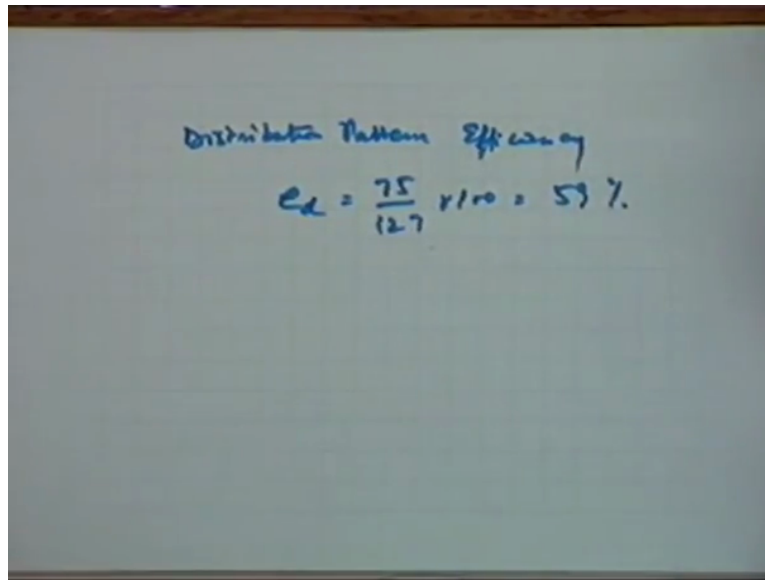 Distribution Pattern Efficiency
ed = 75/127 x 100 = 59 %.